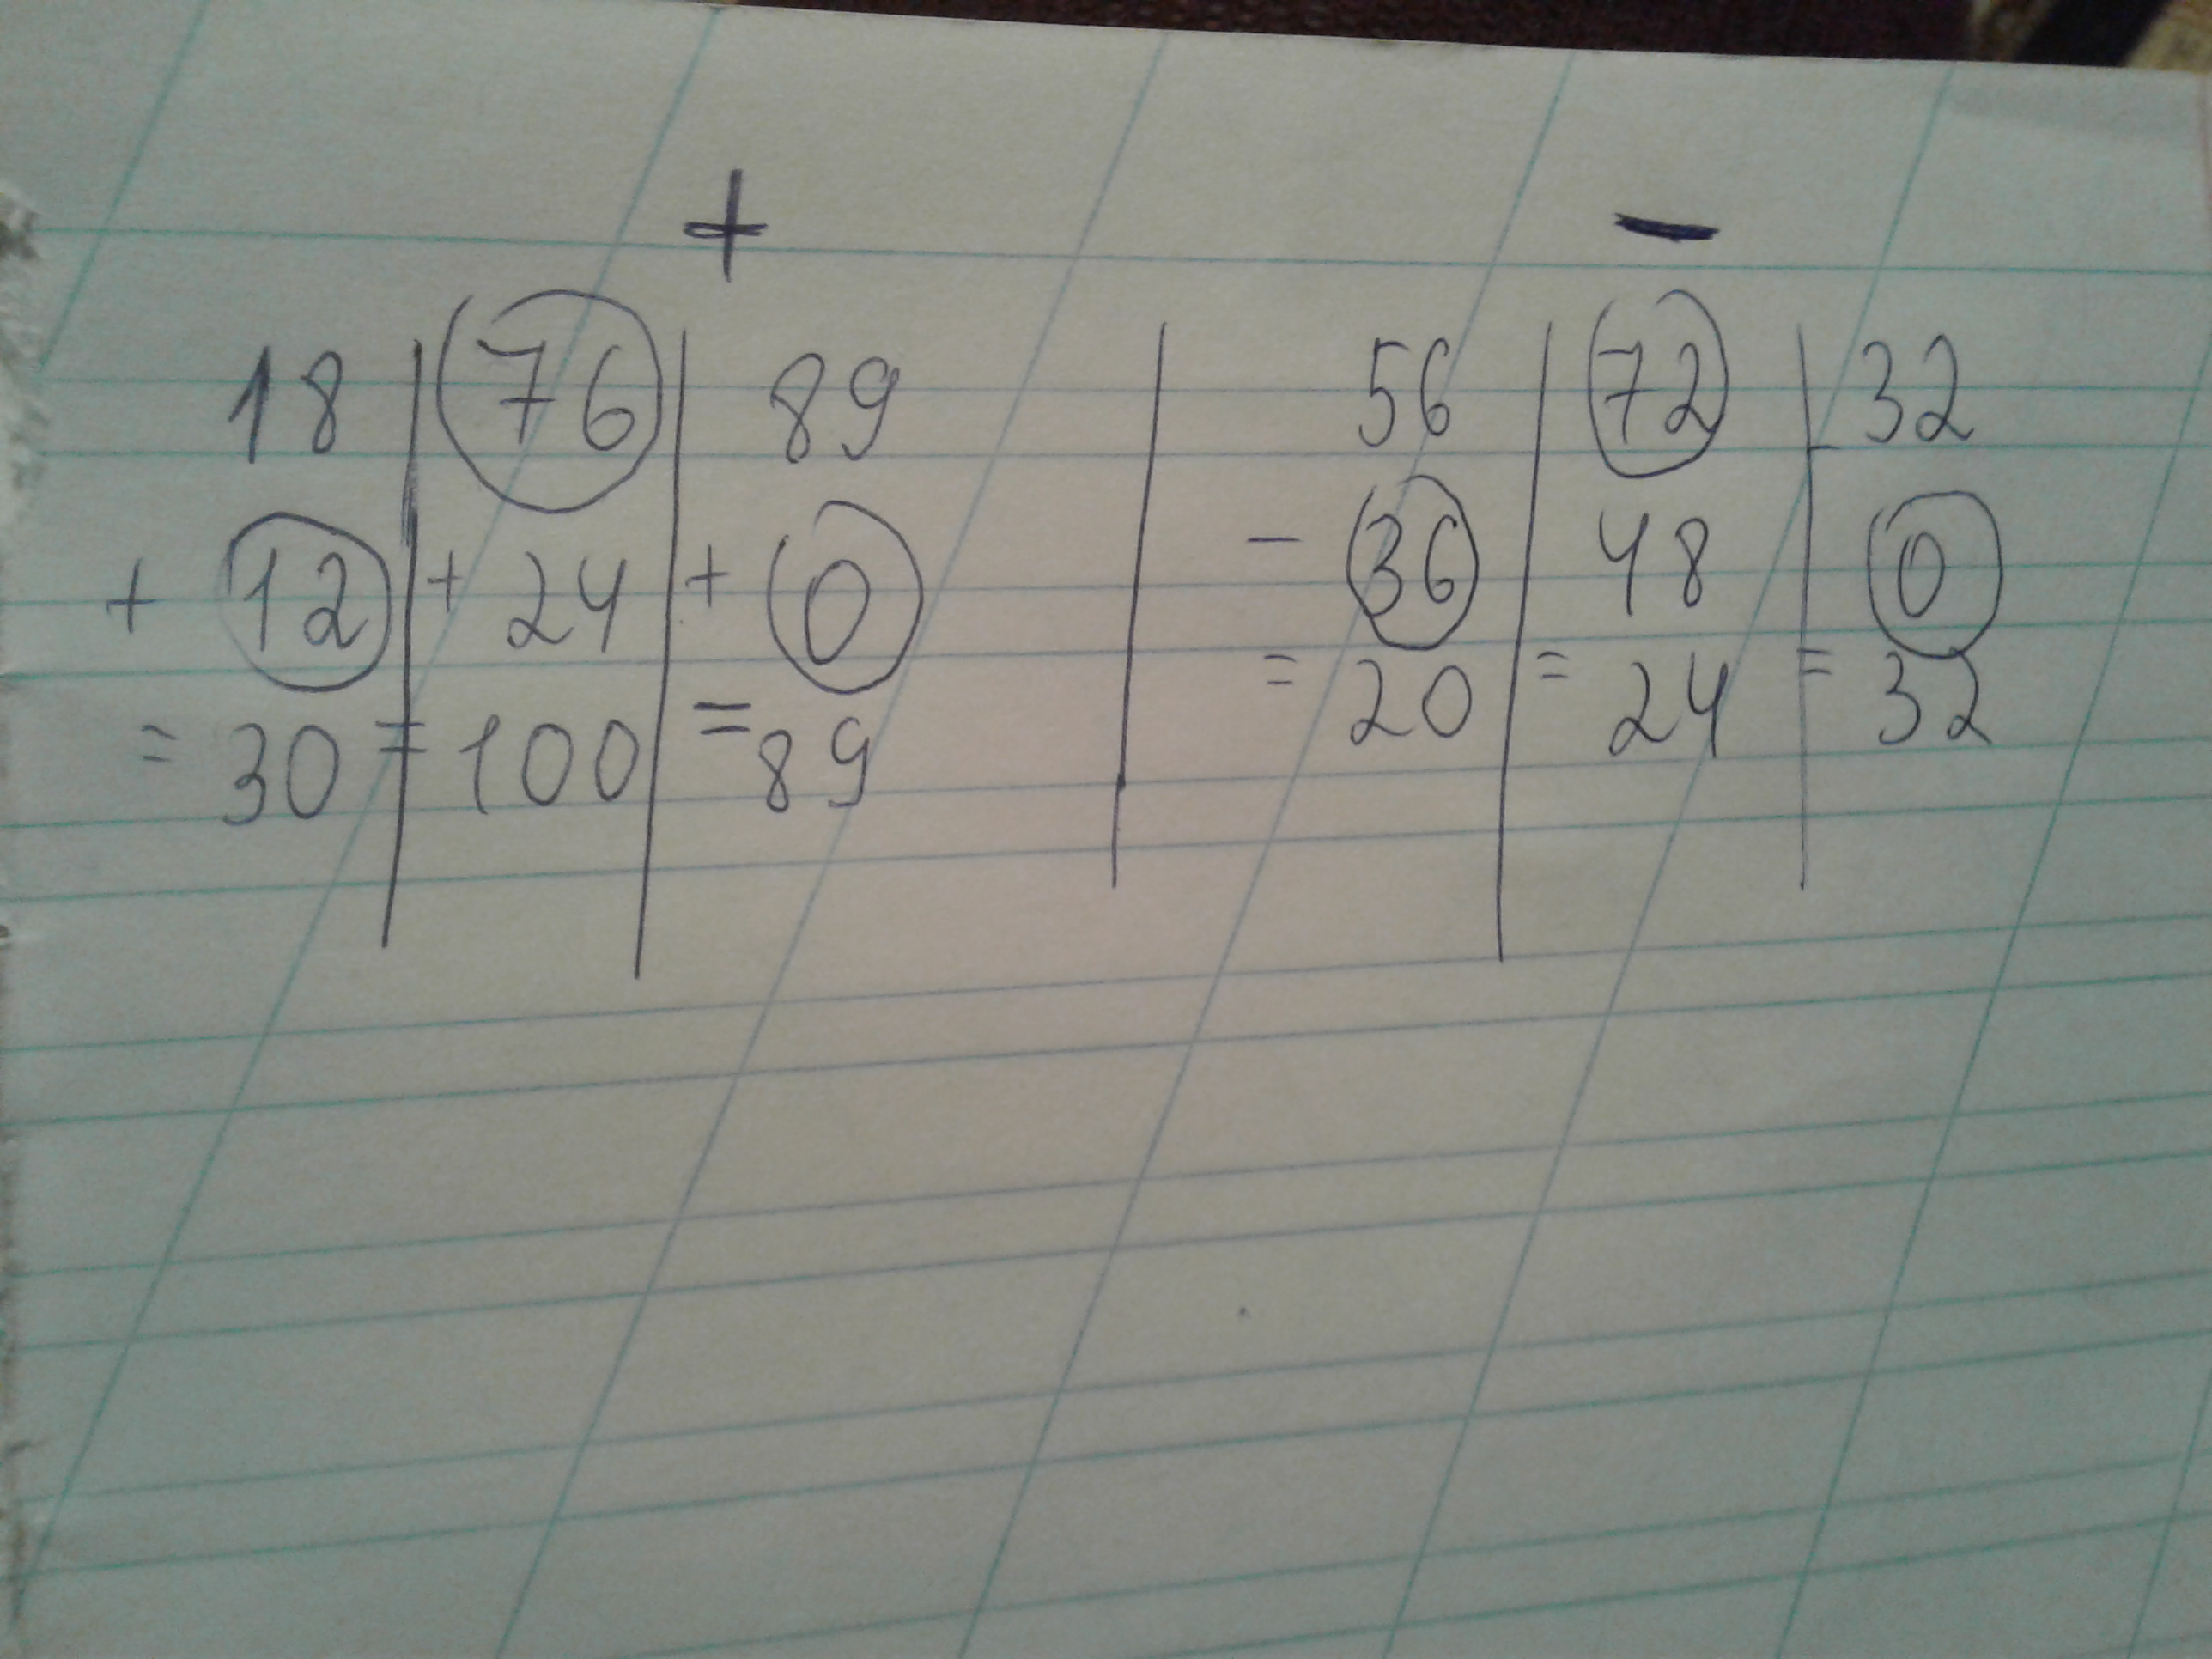 + −
18 | 76 | 89 | 56 | 72 | 32
+ 12 | + 24 | + 0 | − 36 | 48 | 0
= 30 | = 100 | = 89 | = 20 | = 24 | = 32